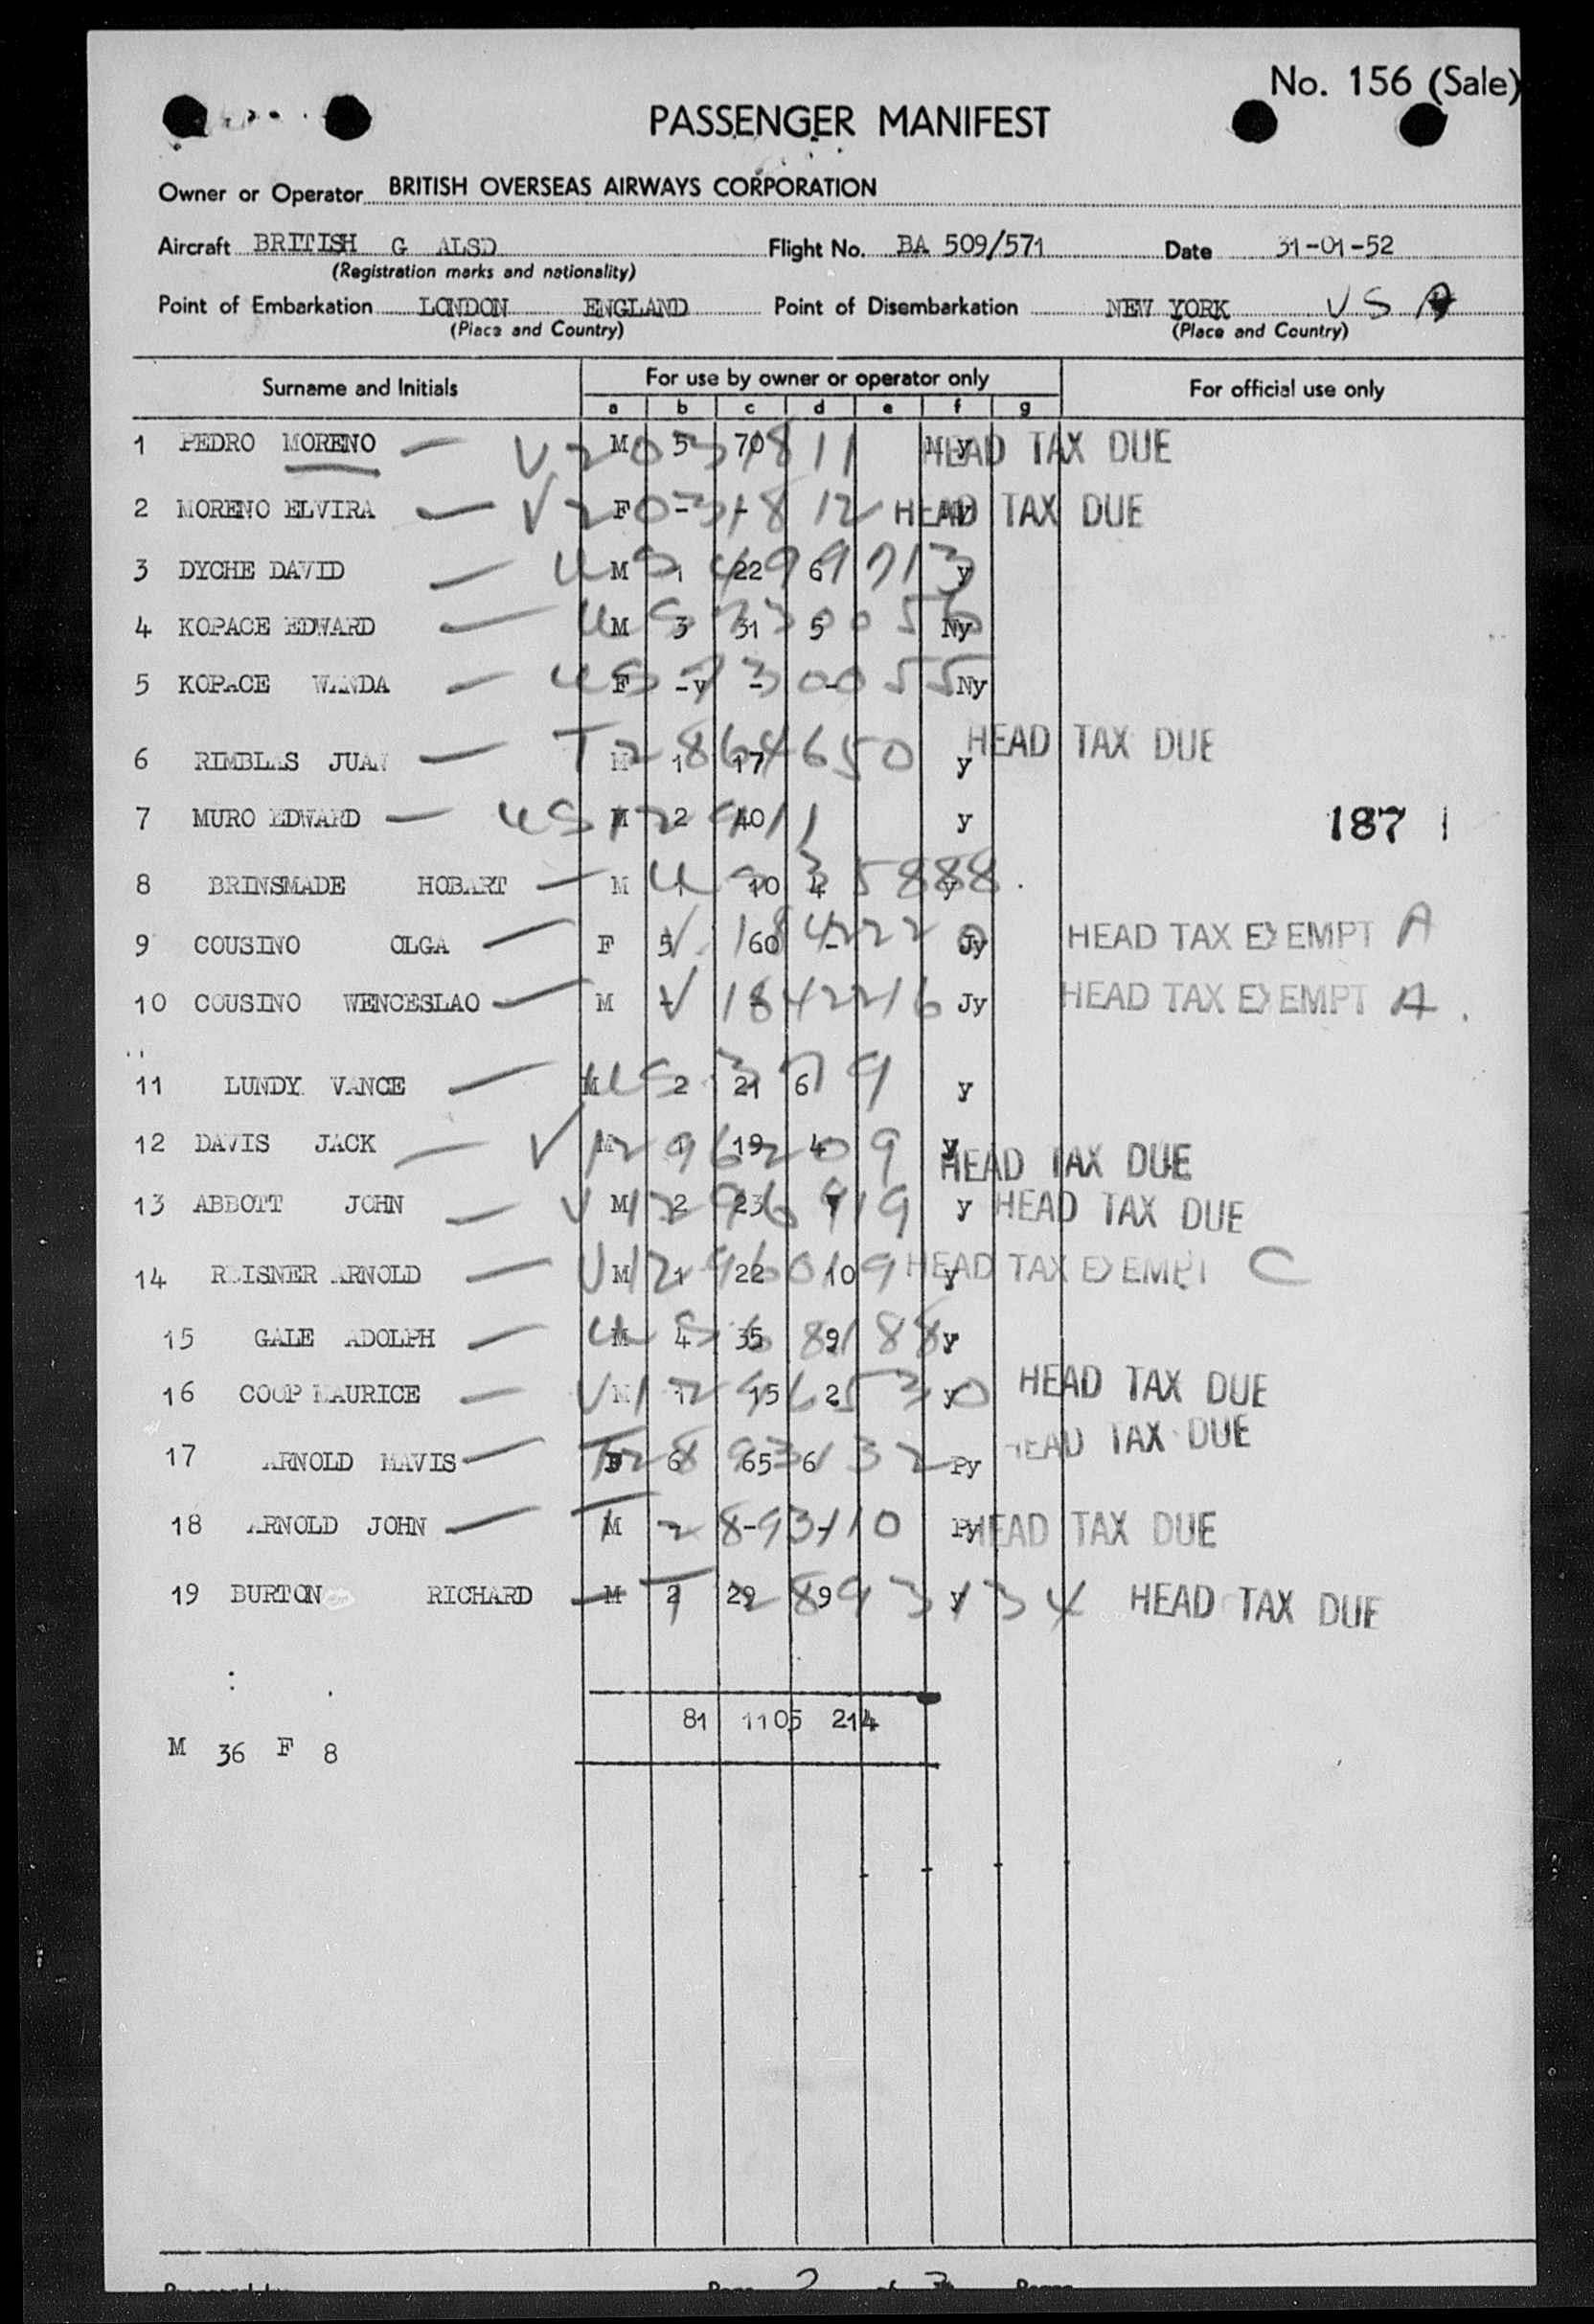 No. 156 (Sale)
PASSENGER MANIFEST
Owner or Operator BRITISH OVERSEAS AIRWAYS CORPORATION
Aircraft BRITISH G ALSD Flight No. BA 509/571 Date 31-01-52
(Registration marks and nationality)
Point of Embarkation LONDON ENGLAND Point of Disembarkation NEW YORK U S A
(Place and Country) (Place and Country)
Surname and Initials For use by owner or operator only For official use only
a b c d e f g
1 PEDRO MORENO — V2031811 M 5 70 HEAD TAX DUE
2 MORENO ELVIRA — V2031812 F - - HEAD TAX DUE
3 DYCHE DAVID — US M 1 22 6 y
4 KOPACE EDWARD — US 730056 M 3 31 5 Ny
5 KOPACE WANDA — US 730055 F -y - - Ny
6 RIMBLAS JUAN — T2864650 M 1 17 y HEAD TAX DUE
7 MURO EDWARD — US M 2 40 y 187 1
8 BRINSMADE HOBART — US 35888 M 1 10 4 y
9 COUSINO OLGA — V1842220 F 5 60 - Jy HEAD TAX EXEMPT A
10 COUSINO WENCESLAO — V1842216 M - - Jy HEAD TAX EXEMPT A
11 LUNDY VANCE — US 3719 M 2 21 6 y
12 DAVIS JACK — V1296209 M 1 19 4 y HEAD TAX DUE
13 ABBOTT JOHN — V1296919 M 2 23 y HEAD TAX DUE
14 REISNER ARNOLD — V1296019 M 1 22 10 y HEAD TAX EXEMPT C
15 GALE ADOLPH — US M 4 35 9 y
16 COOP MAURICE — V1296530 M 1 15 2 y HEAD TAX DUE
17 ARNOLD MAVIS — T2893132 F 6 65 6 Py HEAD TAX DUE
18 ARNOLD JOHN — T2893110 M - - - Py HEAD TAX DUE
19 BURTON RICHARD — T2893134 M 2 29 9 y HEAD TAX DUE
81 1105 214
M 36 F 8
Page 2 of 3 Pages